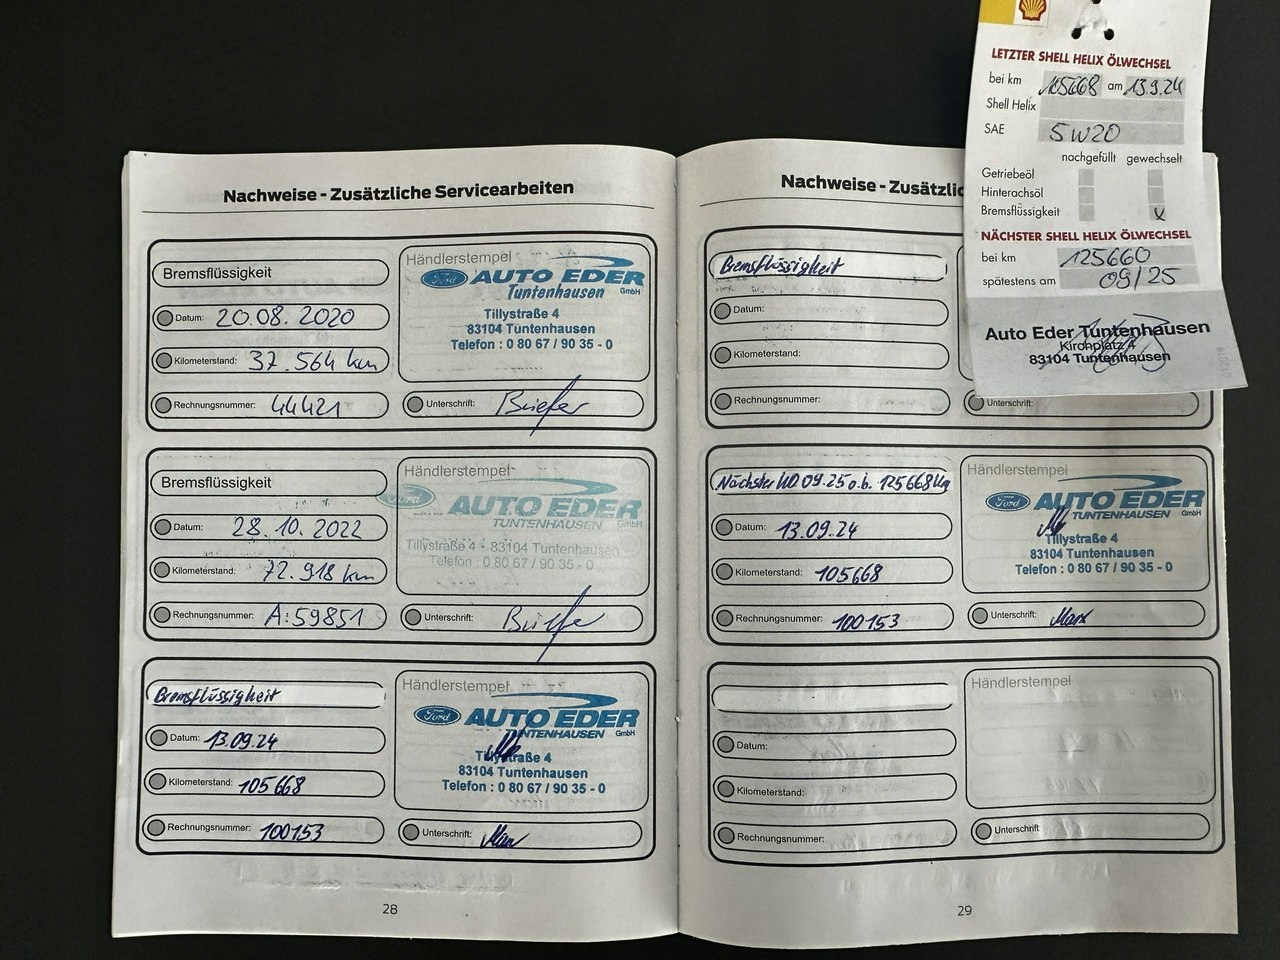 LETZTER SHELL HELIX ÖLWECHSEL
bei km 105668 am 13.9.24
Shell Helix
SAE 5W20
nachgefüllt gewechselt
Getriebeöl
Hinterachsöl
Bremsflüssigkeit x
NÄCHSTER SHELL HELIX ÖLWECHSEL
bei km 125660
spätestens am 09/25
Auto Eder Tuntenhausen
Kirchplatz 4
83104 Tuntenhausen
Nachweise - Zusätzliche Servicearbeiten
Bremsflüssigkeit
Datum: 20.08.2020
Kilometerstand: 37.564 km
Rechnungsnummer: 44421
Händlerstempel
Ford AUTO EDER
Tuntenhausen GmbH
Tillystraße 4
83104 Tuntenhausen
Telefon : 0 80 67 / 90 35 - 0
Unterschrift:
Bremsflüssigkeit
Datum: 28.10.2022
Kilometerstand: 72.918 km
Rechnungsnummer: A:59851
Händlerstempel
Ford AUTO EDER
TUNTENHAUSEN GmbH
Tillystraße 4 - 83104 Tuntenhausen
Telefon : 0 80 67 / 90 35 - 0
Unterschrift:
Bremsflüssigkeit
Datum: 13.09.24
Kilometerstand: 105668
Rechnungsnummer: 100153
Händlerstempel
Ford AUTO EDER
TUNTENHAUSEN GmbH
Tillystraße 4
83104 Tuntenhausen
Telefon : 0 80 67 / 90 35 - 0
Unterschrift:
28
Nachweise - Zusätzlic
Bremsflüssigkeit
Datum:
Kilometerstand:
Rechnungsnummer:
Unterschrift:
Nächster KD 09.25 o.b. 125668 km
Datum: 13.09.24
Kilometerstand: 105668
Rechnungsnummer: 100153
Händlerstempel
Ford AUTO EDER
TUNTENHAUSEN GmbH
Tillystraße 4
83104 Tuntenhausen
Telefon : 0 80 67 / 90 35 - 0
Unterschrift:
Datum:
Kilometerstand:
Rechnungsnummer:
Händlerstempel
Unterschrift:
29